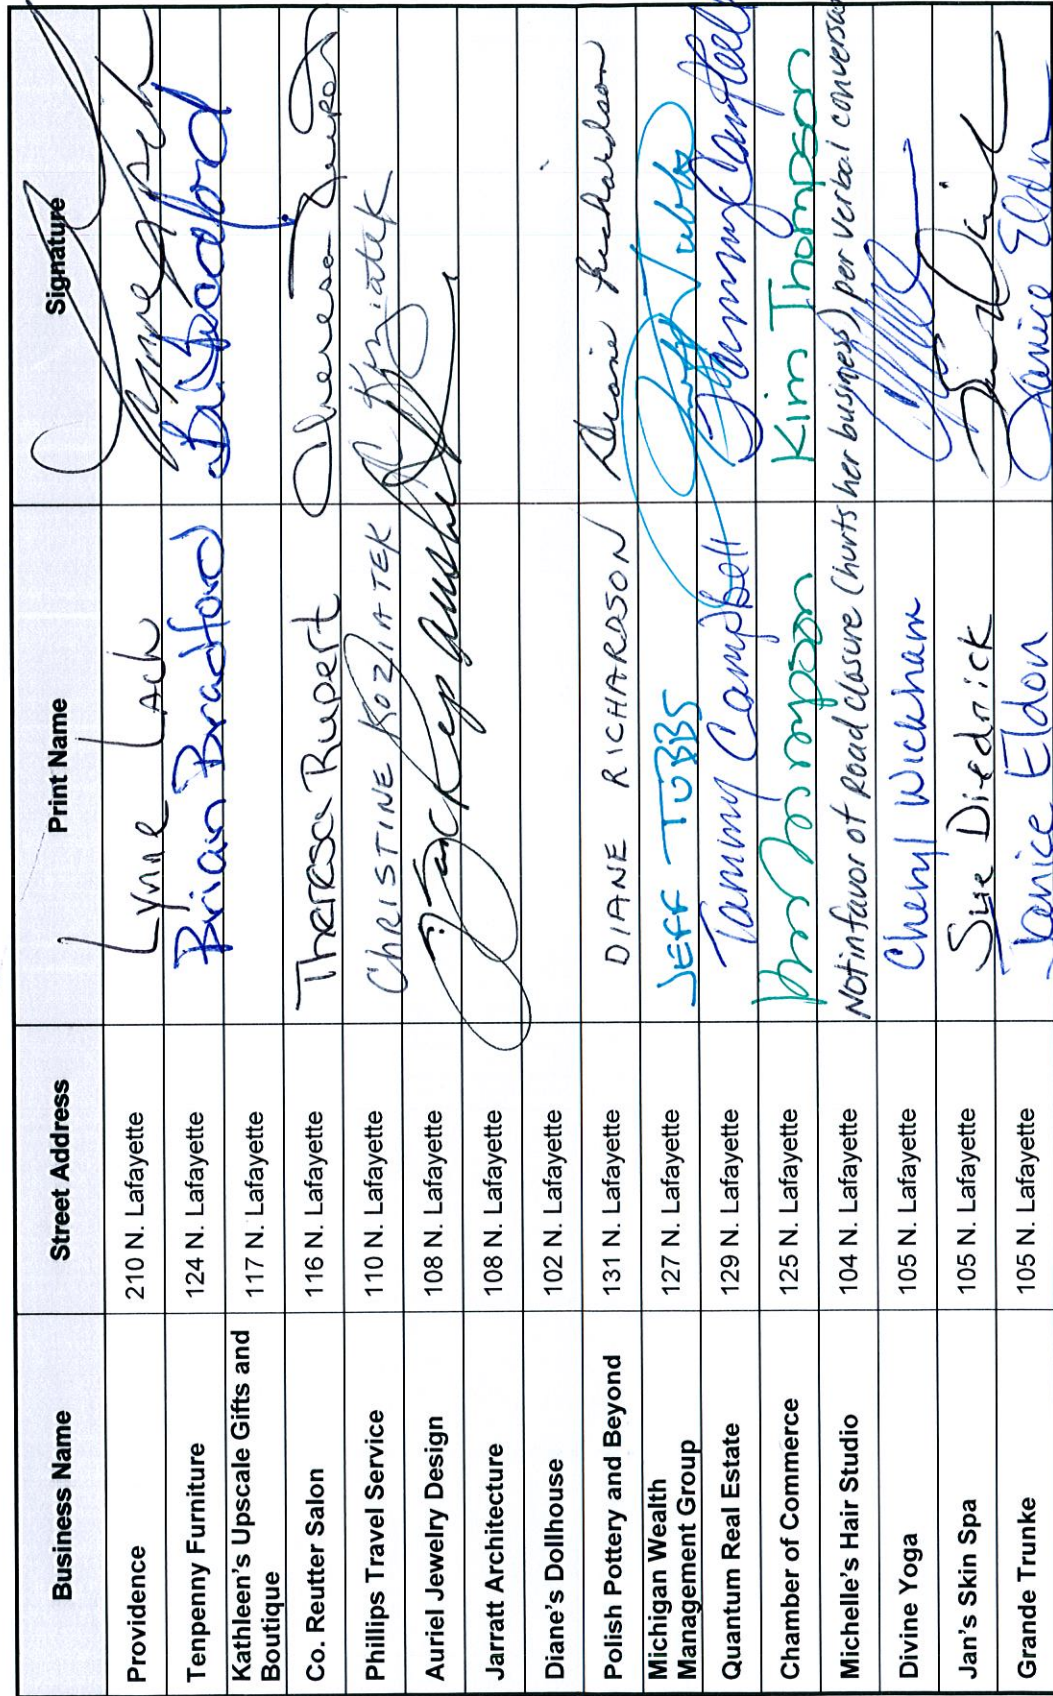 Business Name Street Address Print Name Signature
Providence 210 N. Lafayette Lynne Lach
Tenpenny Furniture 124 N. Lafayette Brian Bradford
Kathleen's Upscale Gifts and
Boutique 117 N. Lafayette
Co. Reutter Salon 116 N. Lafayette Theresa Rupert
Phillips Travel Service 110 N. Lafayette CHRISTINE KOZIATEK C Koziatek
Auriel Jewelry Design 108 N. Lafayette
Jarratt Architecture 108 N. Lafayette
Diane's Dollhouse 102 N. Lafayette
Polish Pottery and Beyond 131 N. Lafayette DIANE RICHARDSON Diane Richardson
Michigan Wealth
Management Group 127 N. Lafayette JEFF TUBBS Jeff Tubbs
Quantum Real Estate 129 N. Lafayette Tammy Campbell Tammy Campbell
Chamber of Commerce 125 N. Lafayette Kim Thompson Kim Thompson
Michelle's Hair Studio 104 N. Lafayette Not in favor of Road closure (hurts her business) per verbal
Divine Yoga 105 N. Lafayette Cheryl Wickham
Jan's Skin Spa 105 N. Lafayette Sue Diedrick
Grande Trunke 105 N. Lafayette Janice Eldon Janice Eldon